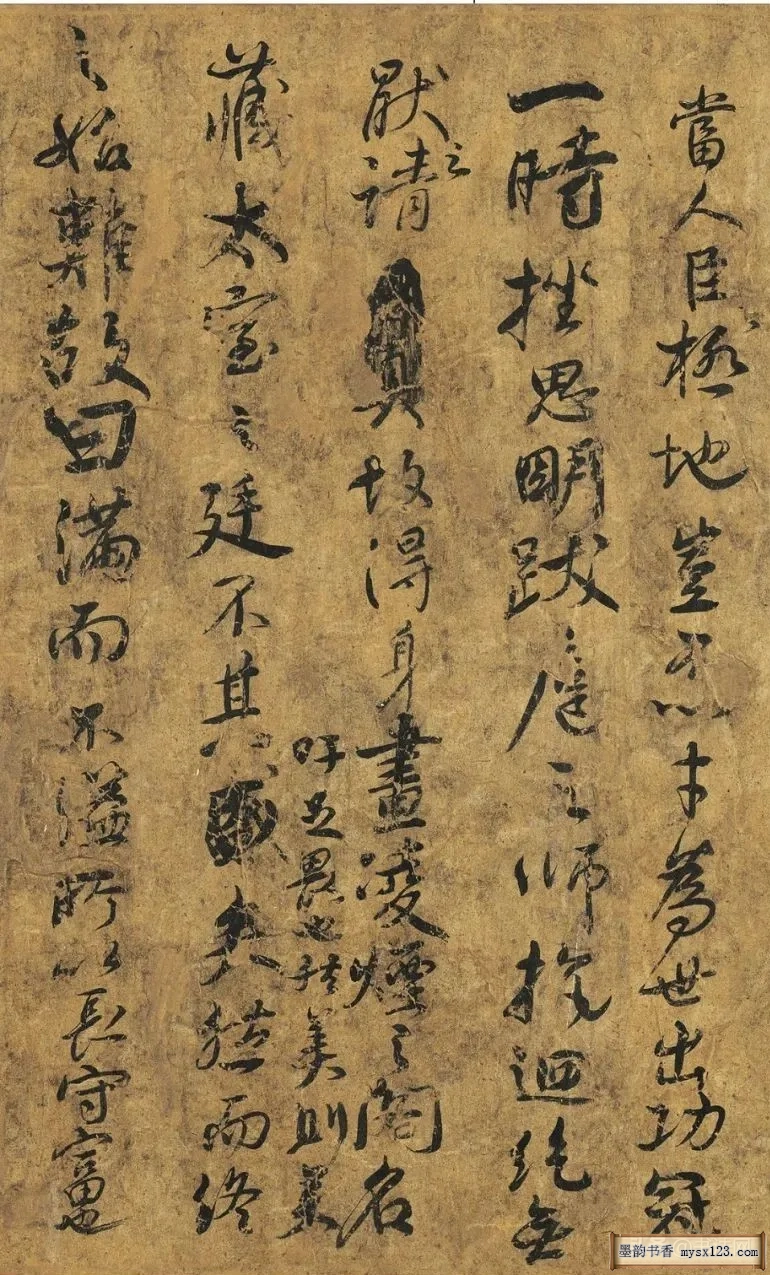 當人臣極地豈不以才為世出功冠
一時挫思明跋扈之師抗迴紇無
厭之請故得身畫凌煙之閣名
藏太室之廷吁足畏也然美則美
矣然而終
之始難故曰滿而不溢所以長守富也
墨韵书香 mysx123.com